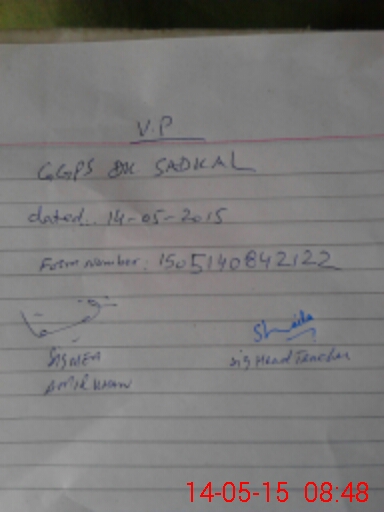 V.P
GGPS DK SADKAL
dated.. 14-05-2015
Form number: 150514084 2122
Shaila
Sig MEA
Sig Head Teacher
AMIR KHAN
14-05-15 08:48